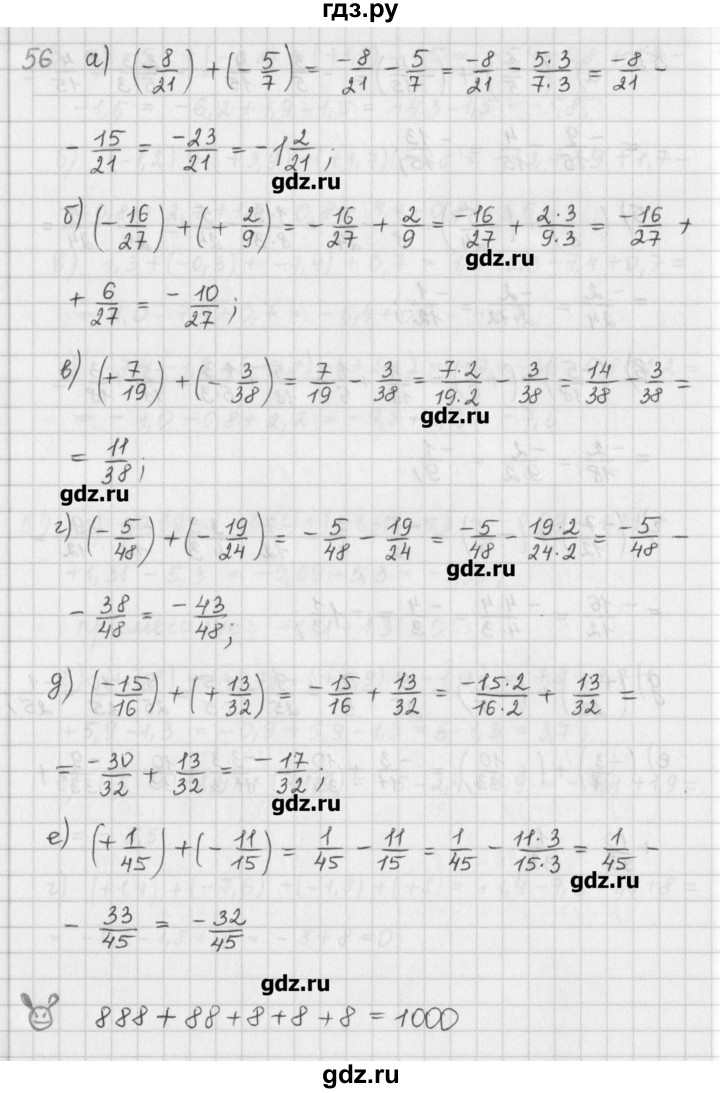 гдз.ру
56 а) (-8/21) + (-5/7) = -8/21 - 5/7 = -8/21 - 5·3/7·3 = -8/21 -
- 15/21 = -23/21 = -1 2/21;
gdz.ru
б) (-16/27) + (+2/9) = -16/27 + 2/9 = -16/27 + 2·3/9·3 = -16/27 +
gdz.ru
+ 6/27 = -10/27;
в) (+7/19) + (-3/38) = 7/19 - 3/38 = 7·2/19·2 - 3/38 = 14/38 - 3/38 =
gdz.ru
= 11/38;
gdz.ru
г) (-5/48) + (-19/24) = -5/48 - 19/24 = -5/48 - 19·2/24·2 = -5/48 -
gdz.ru
- 38/48 = -43/48;
д) (-15/16) + (+13/32) = -15/16 + 13/32 = -15·2/16·2 + 13/32 =
= -30/32 + 13/32 = -17/32;
gdz.ru
е) (+1/45) + (-11/15) = 1/45 - 11/15 = 1/45 - 11·3/15·3 = 1/45 -
gdz.ru
- 33/45 = -32/45
gdz.ru
888 + 88 + 8 + 8 + 8 = 1000
gdz.ru